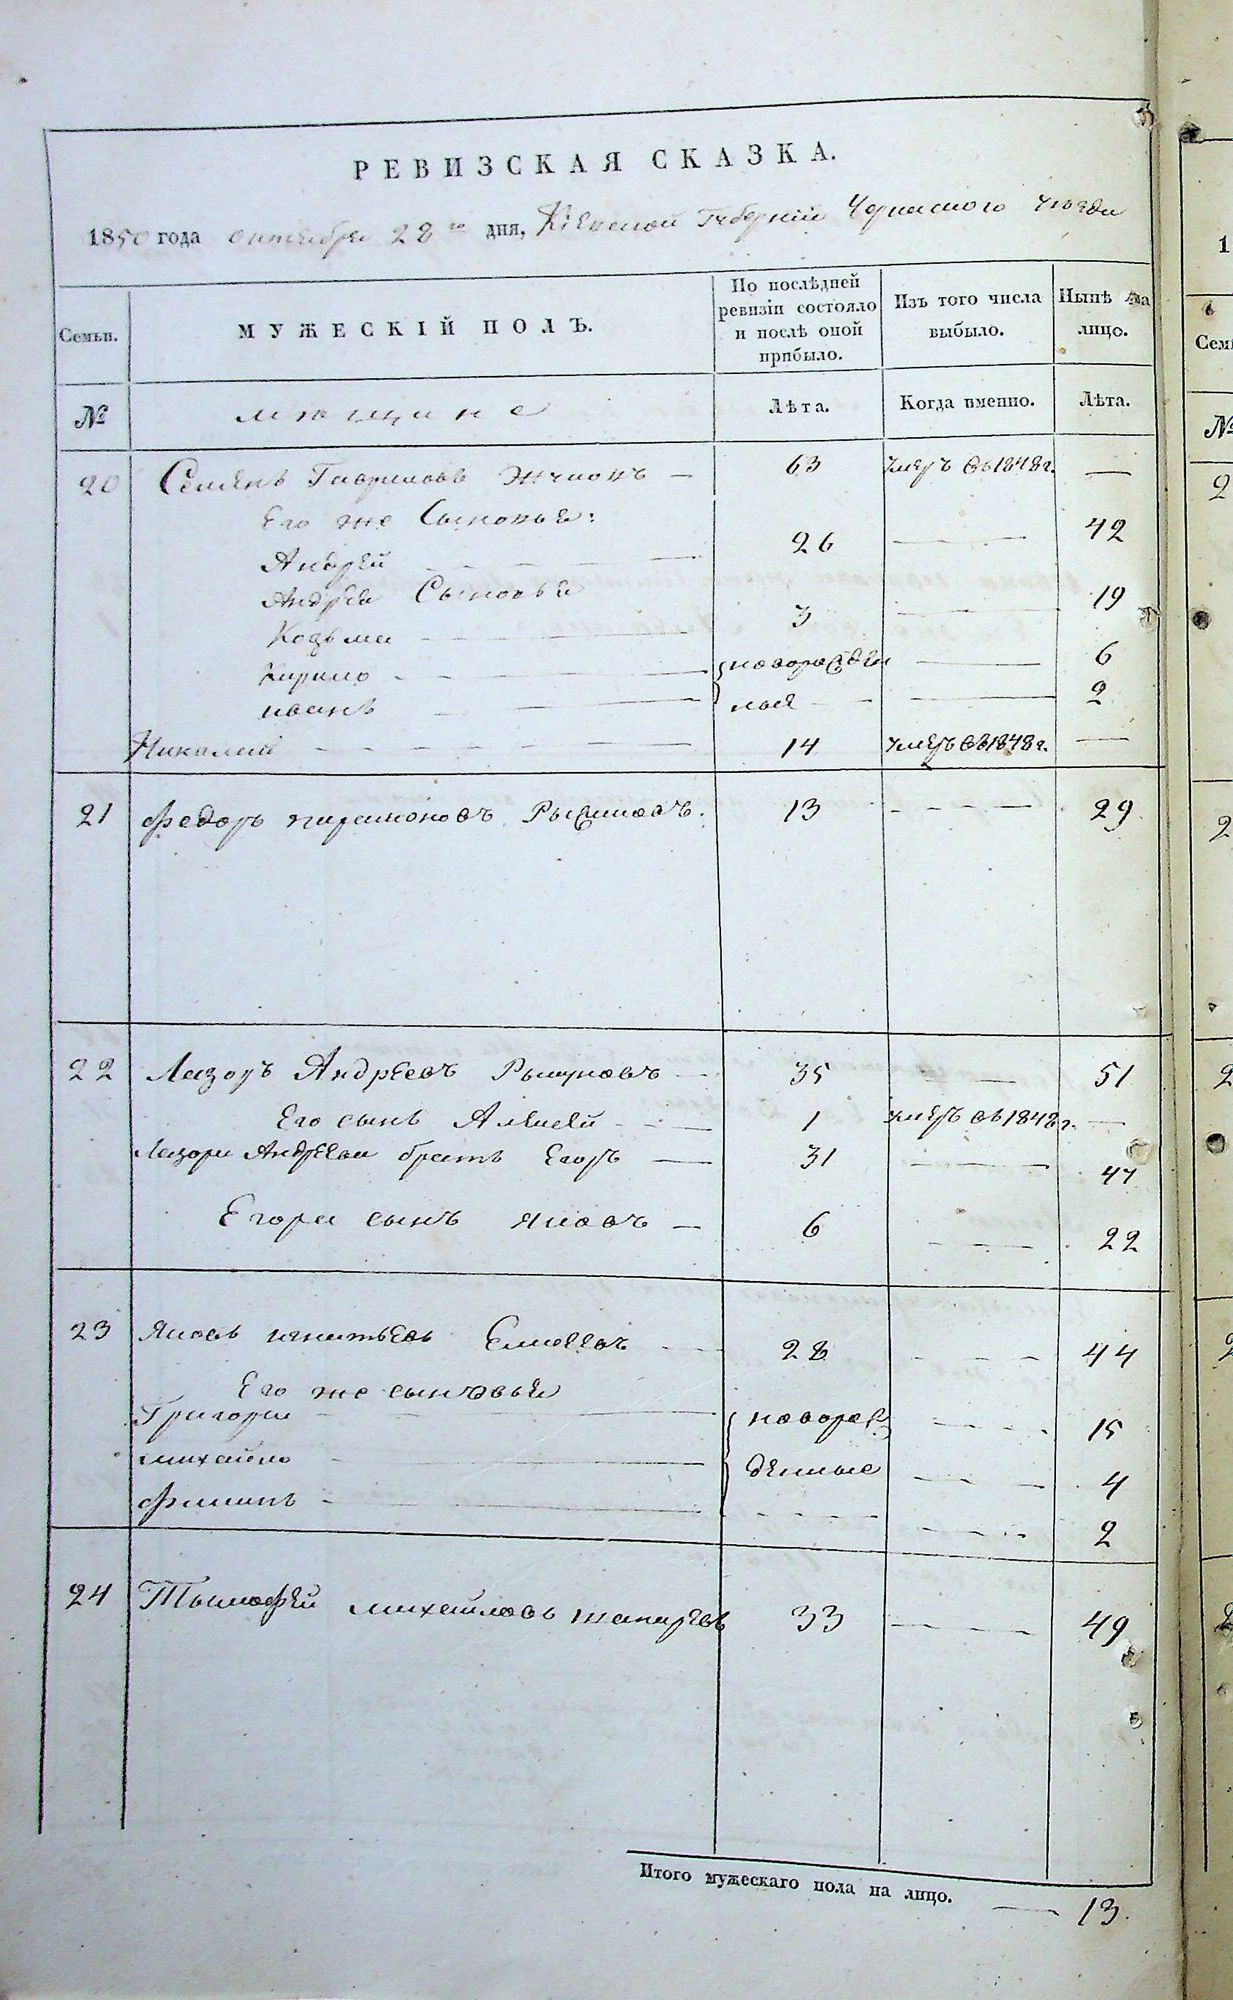 РЕВИЗСКАЯ СКАЗКА.
1850 года октября 28 го дня, Кіевской Губерніи Черкаского уезда
Семьи. МУЖЕСКІЙ ПОЛЪ. По послѣдней ревизіи состояло и послѣ оной прибыло. Изъ того числа выбыло. Нынѣ на лицо.
№ мещане Лѣта. Когда именно. Лѣта.
20 Семенъ Гавриловъ — 63 умеръ въ 1848 г. —
Его же Сыновья:
Андрей 26 42
Андрея Сыновья
Козьма 3 19
Кирило новорожден 6
иванъ ныя 2
Николай 14 умеръ въ 1848 г. —
21 Федоръ 13 29
22 Лазоръ Андреевъ 35 51
Его сынъ Алексей 1 умеръ въ 1848 г. —
Лазоря Андреева братъ Егоръ 31 47
Егора сынъ Яковъ 6 22
23 Яковъ 28 44
Его же сыновья
Григорий новорож 15
михайло денные 4
филипъ 2
24 Тымофей михайловъ 33 49
Итого мужескаго пола на лицо. — 13.
1
Сем
№
2
2
2
2
2